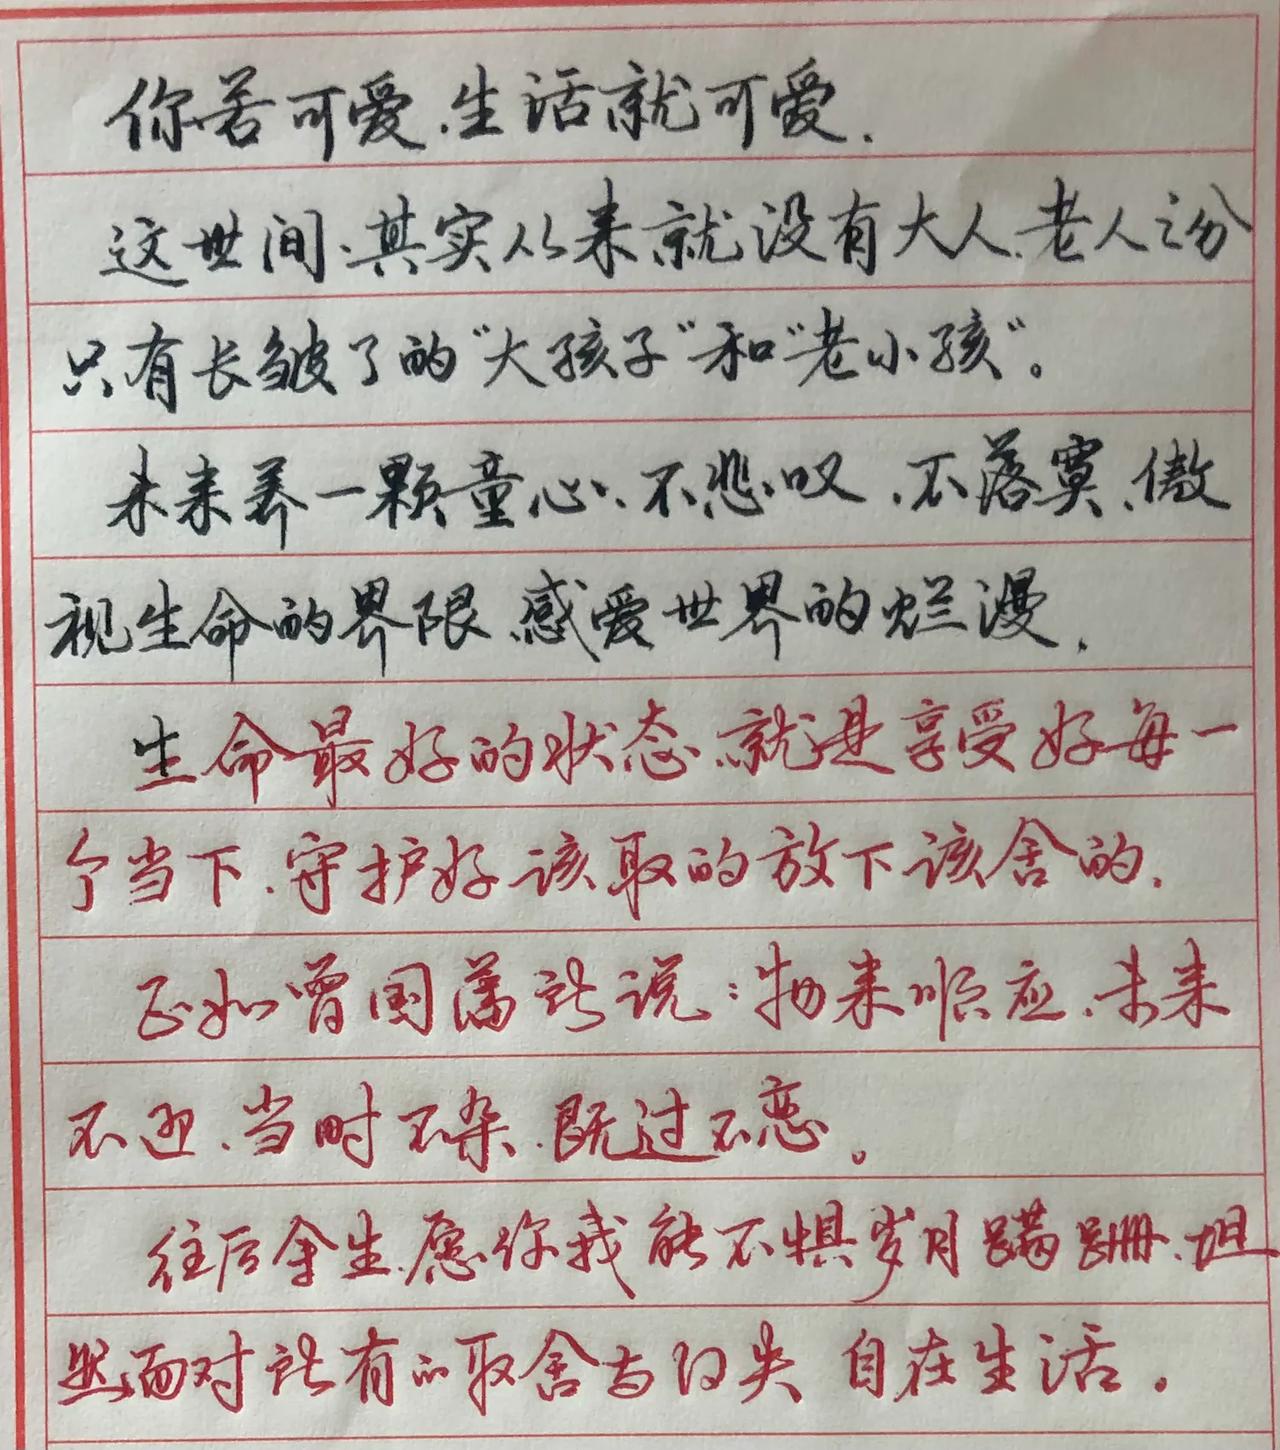 你若可爱,生活就可爱.
这世间,其实从来就没有大人、老人之分
只有长皱了的“大孩子”和“老小孩”。
未来养一颗童心、不悲叹、不落寞、傲
视生命的界限、感爱世界的烂漫.
生命最好的状态、就是享受好每一
个当下、守护好该取的放下该舍的.
正如曾国藩所说:物来顺应、未来
不迎、当时不杂、既过不恋。
往后余生、愿你我能不惧岁月蹒跚、坦
然面对所有的取舍与得失 自在生活。